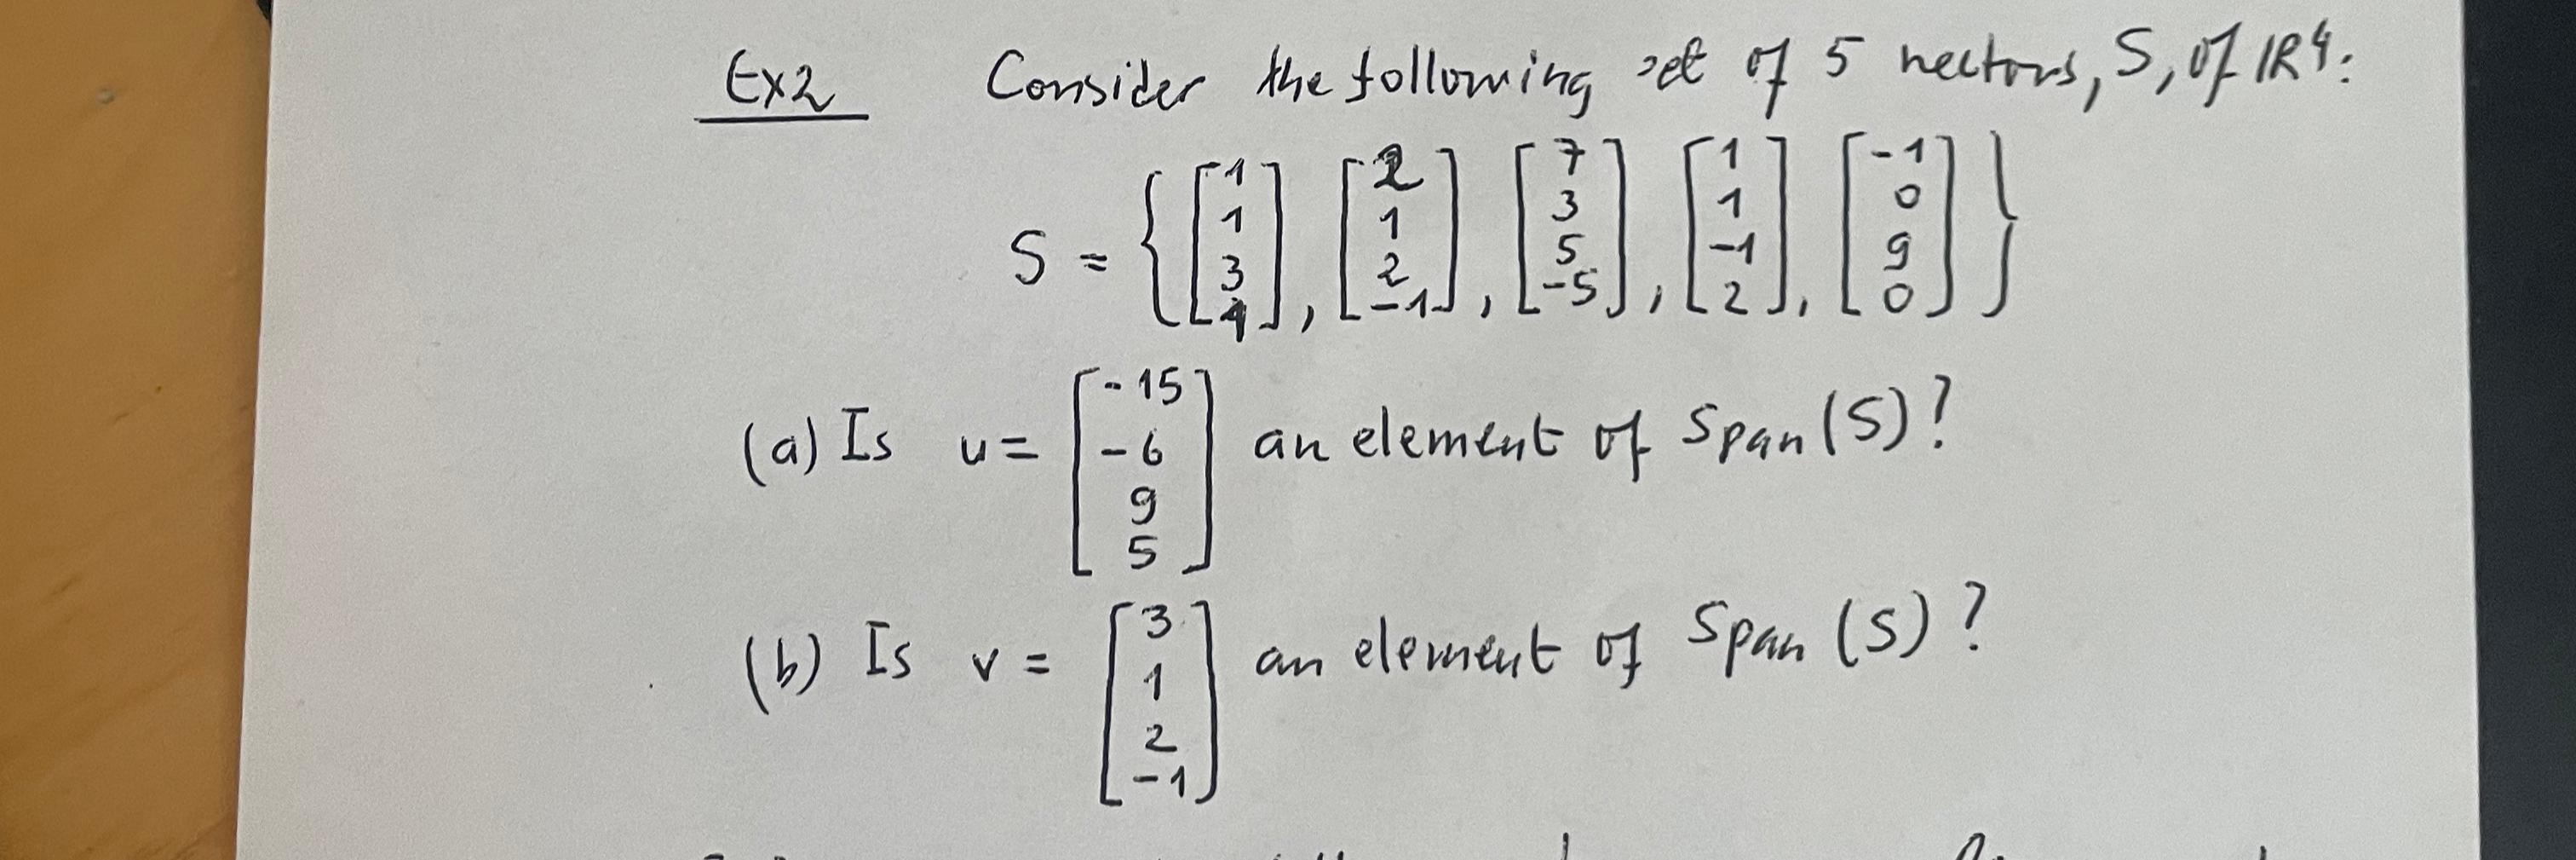 Ex2 Consider the following set of 5 vectors, S, of IR⁴:
S = { [1 1 3 4], [2 1 2 -1], [7 3 5 -5], [1 1 -1 2], [-1 0 9 0] }
(a) Is u = [-15 -6 9 5] an element of Span(S)?
(b) Is v = [3 1 2 -1] an element of Span(S)?